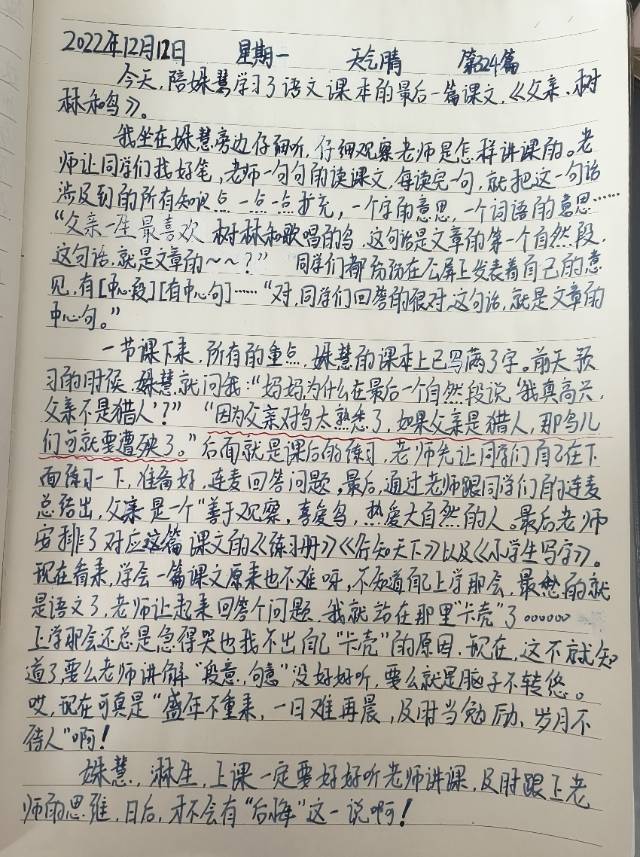 2022年12月12日 星期一 天气晴 第324篇
今天,陪姝慧学习了语文课本的最后一篇课文,《父亲、树
林和鸟》。
我坐在姝慧旁边仔细听,仔细观察老师是怎样讲课的。老
师让同学们找好笔,老师一句句的读课文,每读完一句,就把这一句话
涉及到的所有知识点一点一点扩充,一个字的意思,一个词语的意思……
“父亲一生最喜欢树林和歌唱的鸟,这句话是文章的第一个自然段,
这句话,就是文章的~~?” 同学们都纷纷在公屏上发表着自己的意
见,有[中心段][有中心句]……“对,同学们回答的很对,这句话,就是文章的
中心句。”
一节课下来,所有的重点,姝慧的课本上已写满了字。前天预
习的时候,姝慧就问我:“妈妈,为什么在最后一个自然段说‘我真高兴,
父亲不是猎人’?” “因为父亲对鸟太熟悉了,如果父亲是猎人,那鸟儿
们可就要遭殃了。”后面就是课后的练习,老师先让同学们自己在下
面练习一下,准备好,连麦回答问题。最后,通过老师跟同学们的连麦
总结出,父亲是一个“善于观察,喜爱鸟,热爱大自然的人。最后老师
安排了对应这篇课文的《练习册》《行知天下》以及《小学生写字》。
现在看来,学会一篇课文原来也不难呀,不知道自己上学那会,最愁的就
是语文了,老师让起来回答个问题,我就站在那里“卡壳”了……
上学那会还总是急得哭也找不出自己“卡壳”的原因,现在,这不就知
道了,要么老师讲解“段意,句意”没好好听,要么就是脑子不转悠。
哎,现在可真是“盛年不重来,一日难再晨,及时当勉励,岁月不
待人”啊!
姝慧,淋生,上课一定要好好听老师讲课,及时跟上老
师的思维,日后,才不会有“后悔”这一说啊!